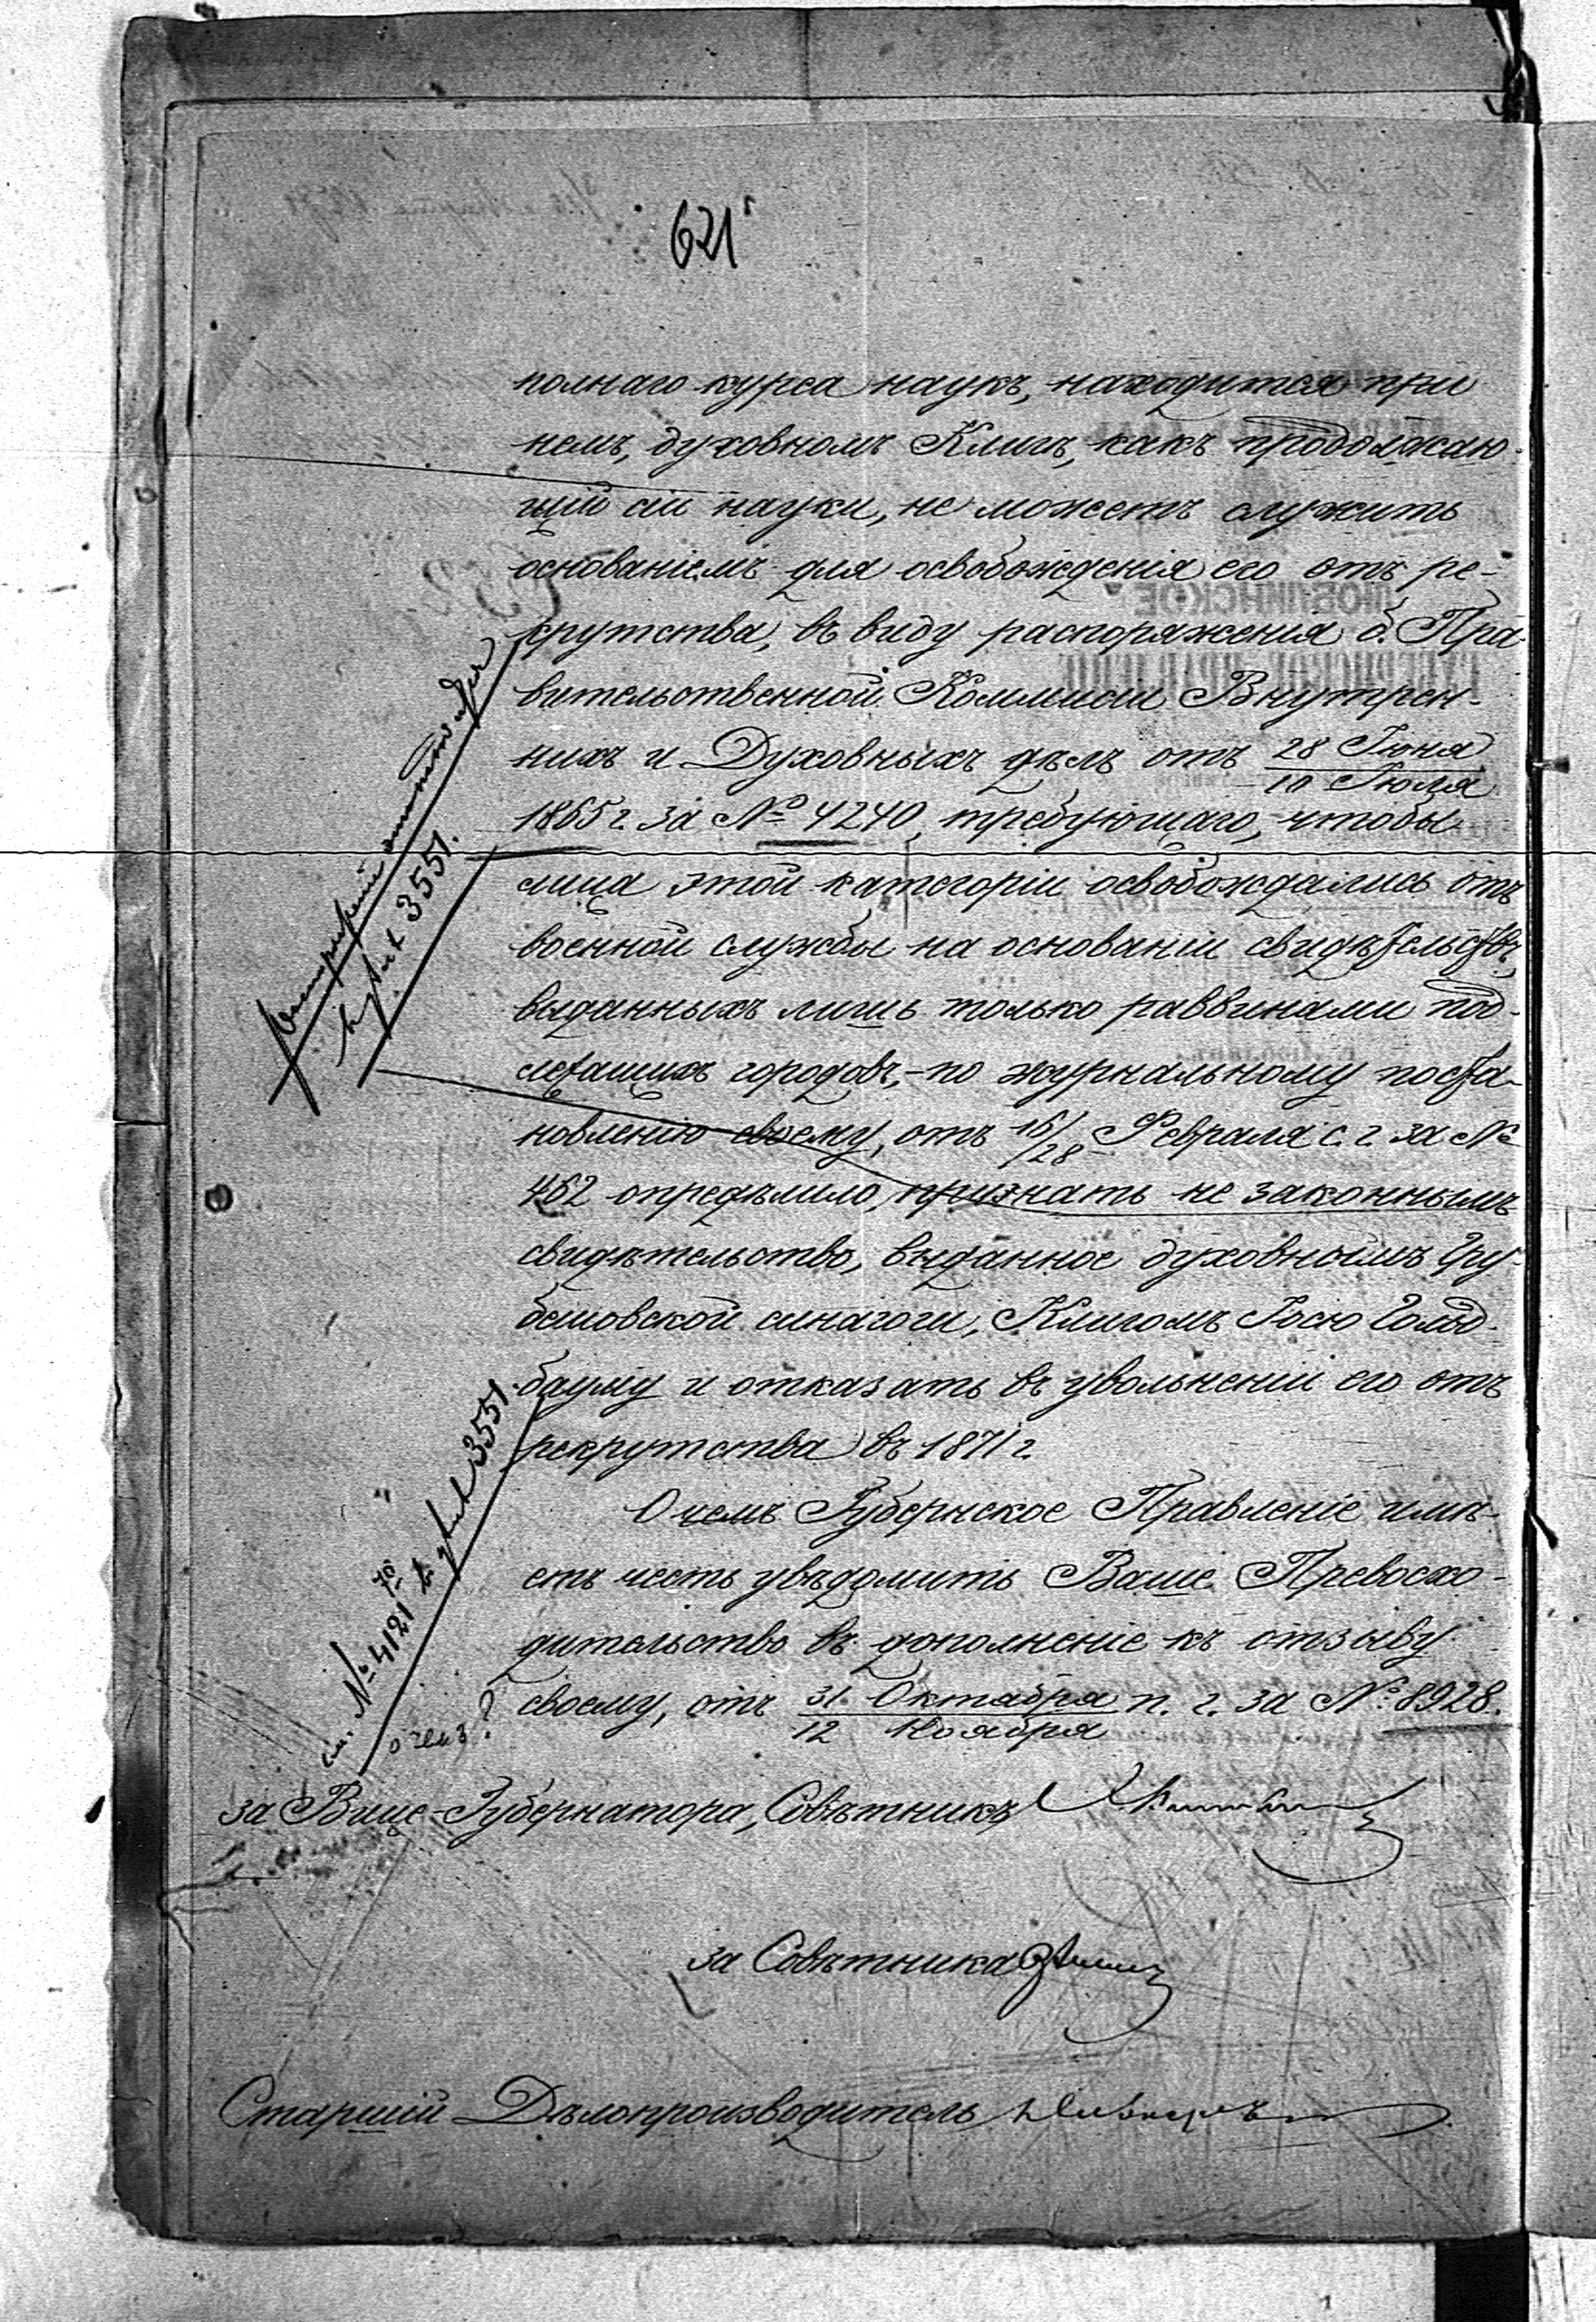 621
полнаго курса наукъ, находится при
немъ, духовномъ Клигѣ, какъ продолжаю-
щій сіи науки, не можетъ служить
основаніемъ для освобожденія его отъ ре-
крутства, въ виду распоряженія б. Пра-
вительственной Коммисіи Внутрен-
нихъ и Духовныхъ дѣлъ отъ 28 Іюня
10 Іюля
1865 г. за № 4240, требующаго, чтобы
лица этой категоріи освобождались отъ
военной службы на основаніи свидѣтельствъ,
выданныхъ лишь только раввинами под-
лежащихъ городовъ, - по журнальному поста-
новленію своему, отъ 16/28 Февраля с. г. за №
462 опредѣлило, признать не законнымъ
свидѣтельство, выданное духовнымъ Гру-
бешовской синагоги, Клигомъ Іосю Гольд-
бауму и отказать въ увольненіи его отъ
рекрутства въ 1871 г.
О чемъ Губернское Правленіе имѣ-
етъ честь увѣдомить Ваше Превосхо-
дительство въ дополненіе къ отзыву
своему, отъ 31 Октября п. г. за № 8928.
12 Ноября
3551.
см. № 4121 3551.
70
о чемъ?
за Вице-Губернатора, Совѣтникъ
за Совѣтника
Старшій Дѣлопроизводитель